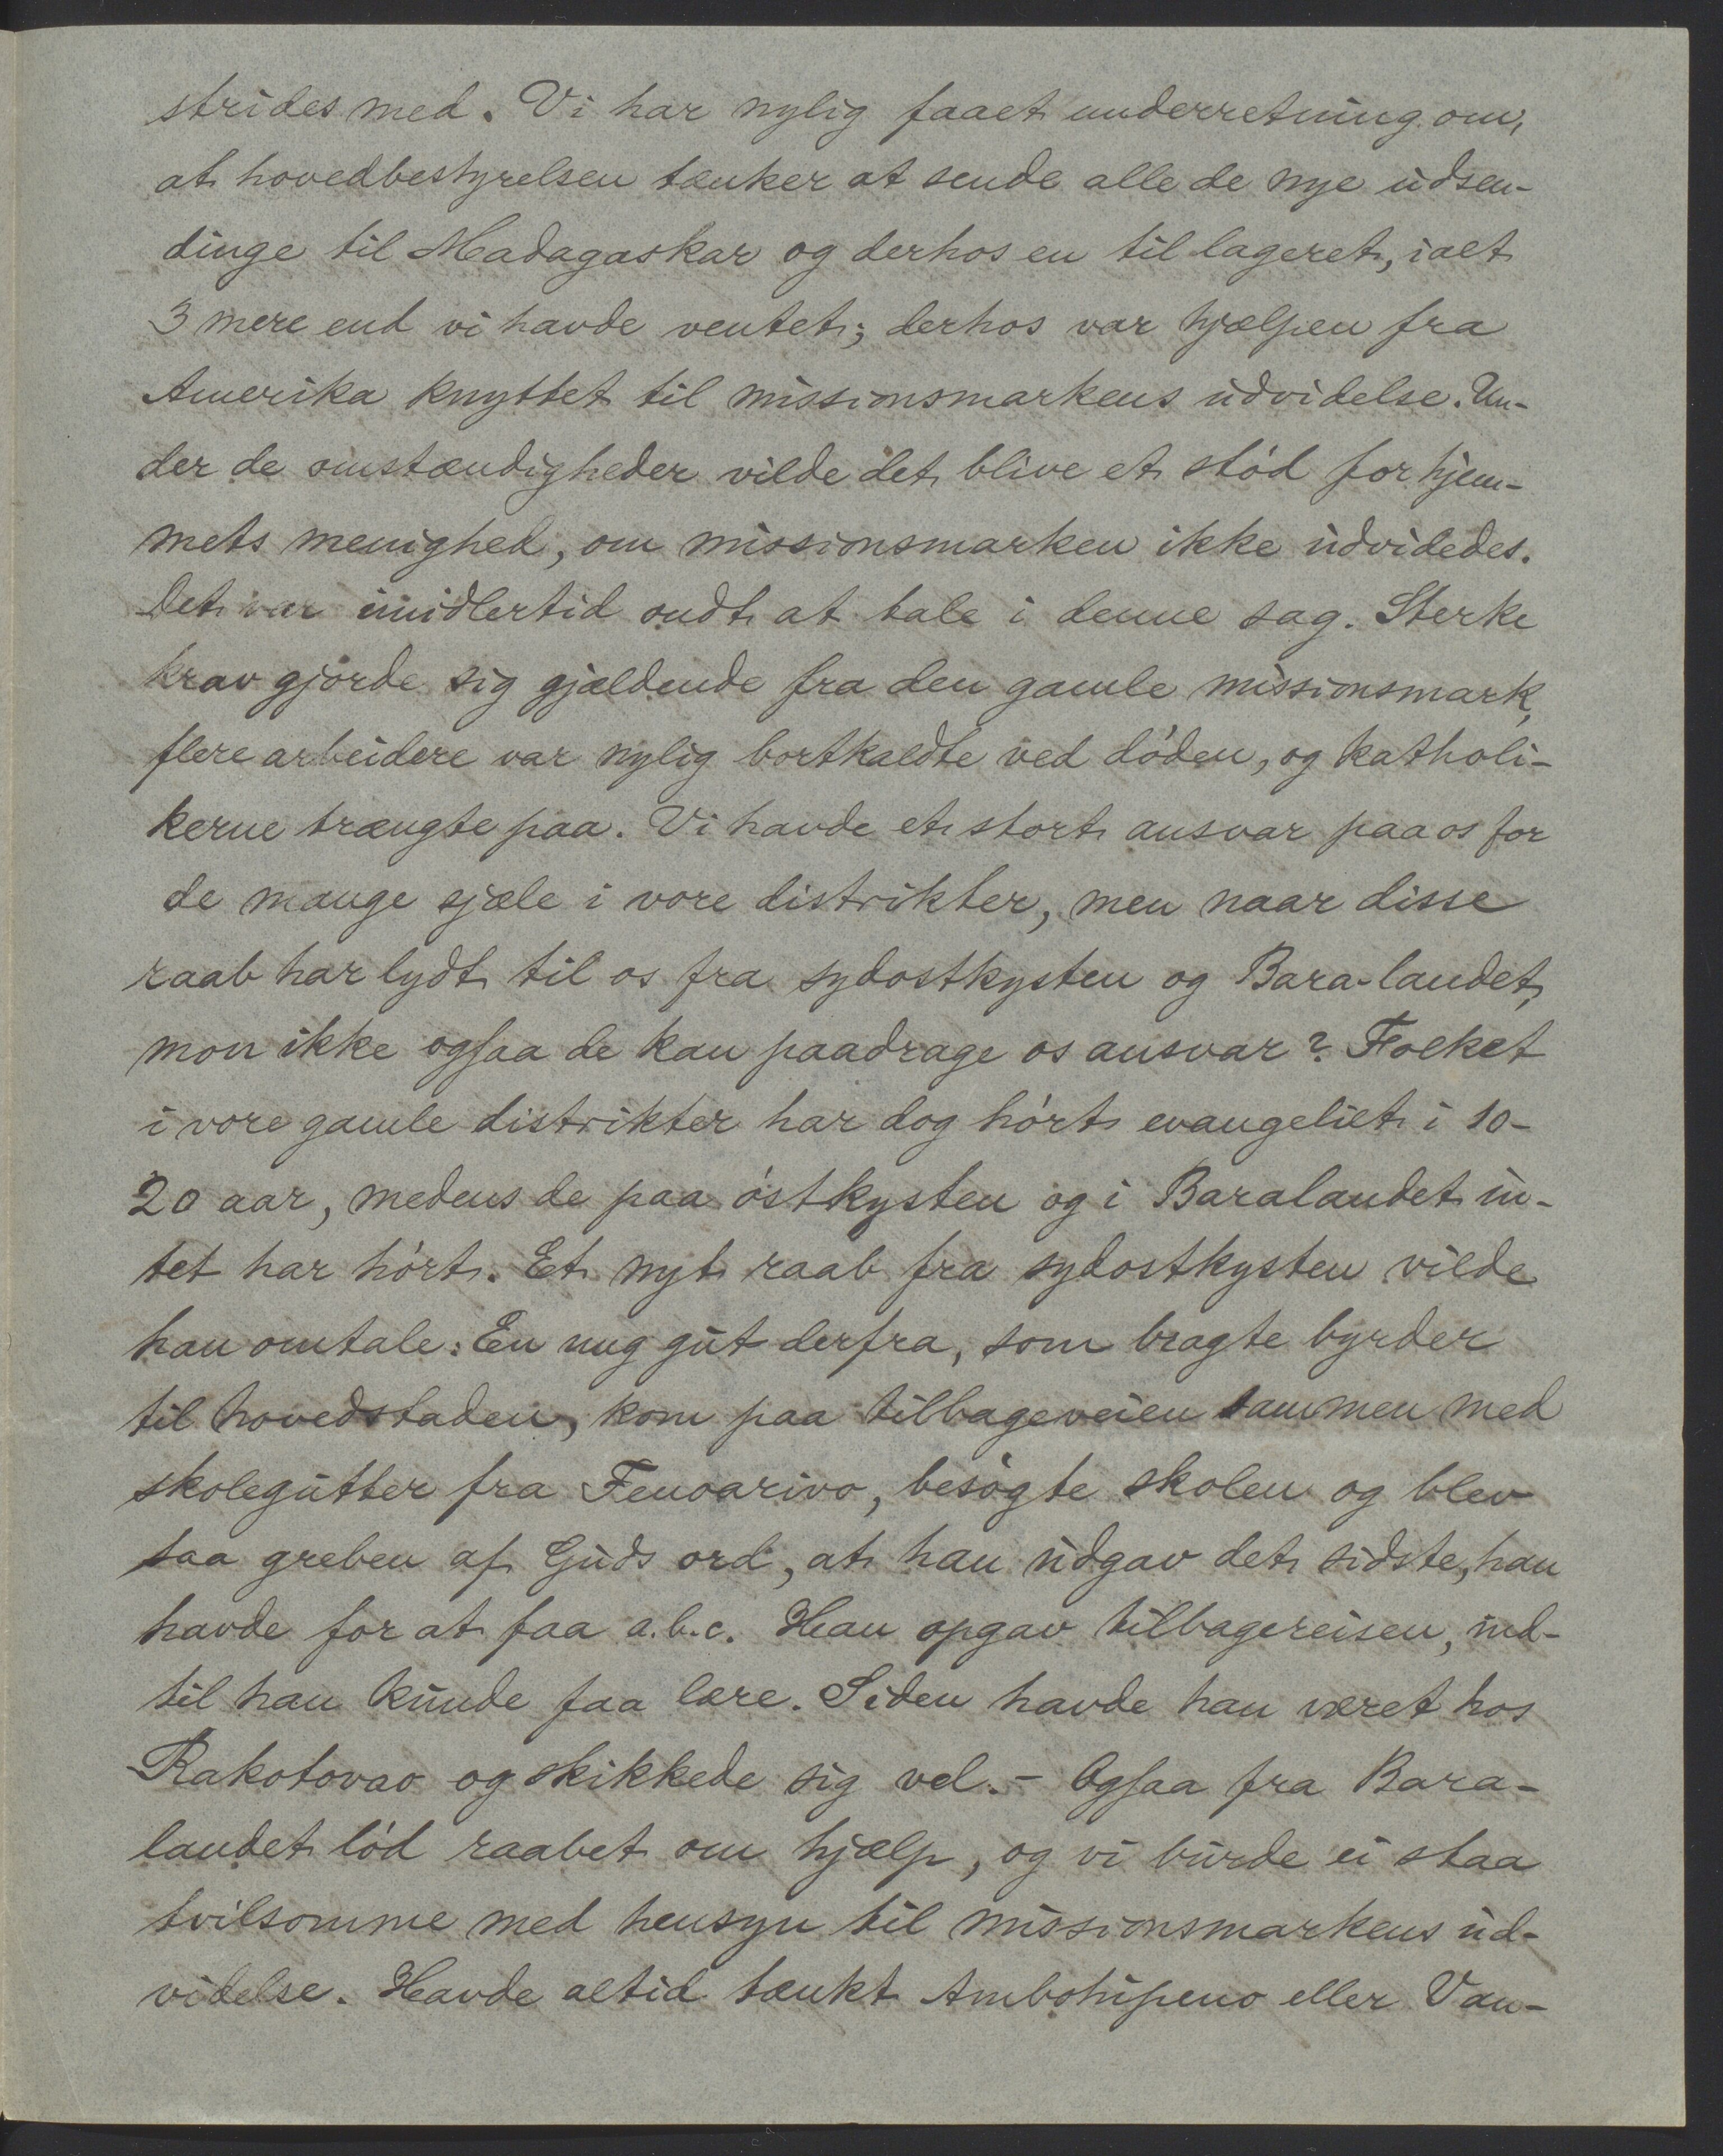 strides med. Vi har nylig faaet underretning om,
at hovedbestyrelsen tænker at sende alle de nye udsen-
dinge til Madagaskar og derhos en til lageret, ialt
3 mere end vi havde ventet; derhos var hjælpen fra
Amerika knyttet til missionsmarkens udvidelse. Un-
der de omstændigheder vilde det blive et stød for hjem-
mets menighed, om missionsmarken ikke udvidedes.
Det var imidlertid ondt at tale i denne sag. Sterke
krav gjorde sig gjældende fra den gamle missionsmark,
flere arbeidere var nylig bortkaldte ved døden, og katholi-
kerne trængte paa. Vi havde et stort ansvar paa os for
de mange sjæle i vore distrikter, men naar disse
raab har lydt til os fra sydostkysten og Bara-landet,
mon ikke ogsaa de kan paadrage os ansvar? Folket
i vore gamle distrikter har dog hørt evangeliet i 10-
20 aar, medens de paa østkysten og i Baralandet in-
tet har hørt. Et nyt raab fra sydostkysten vilde
han omtale: En ung gut derfra, som bragte byrder
til hovedstaden, kom paa tilbageveien sammen med
skolegutter fra Fenoarivo, besøgte skolen og blev
saa greben af Guds ord, at han udgav det sidste, han
havde for at faa a.b.c. Han opgav tilbagereisen, ind-
til han kunde faa lære. Siden havde han været hos
Rakotovao og skikkede sig vel. - Ogsaa fra Bara-
landet lød raabet om hjælp, og vi burde ei staa
tvilsomme med hensyn til missionsmarkens ud-
videlse. Havde altid tænkt Ambohipeno eller Van-